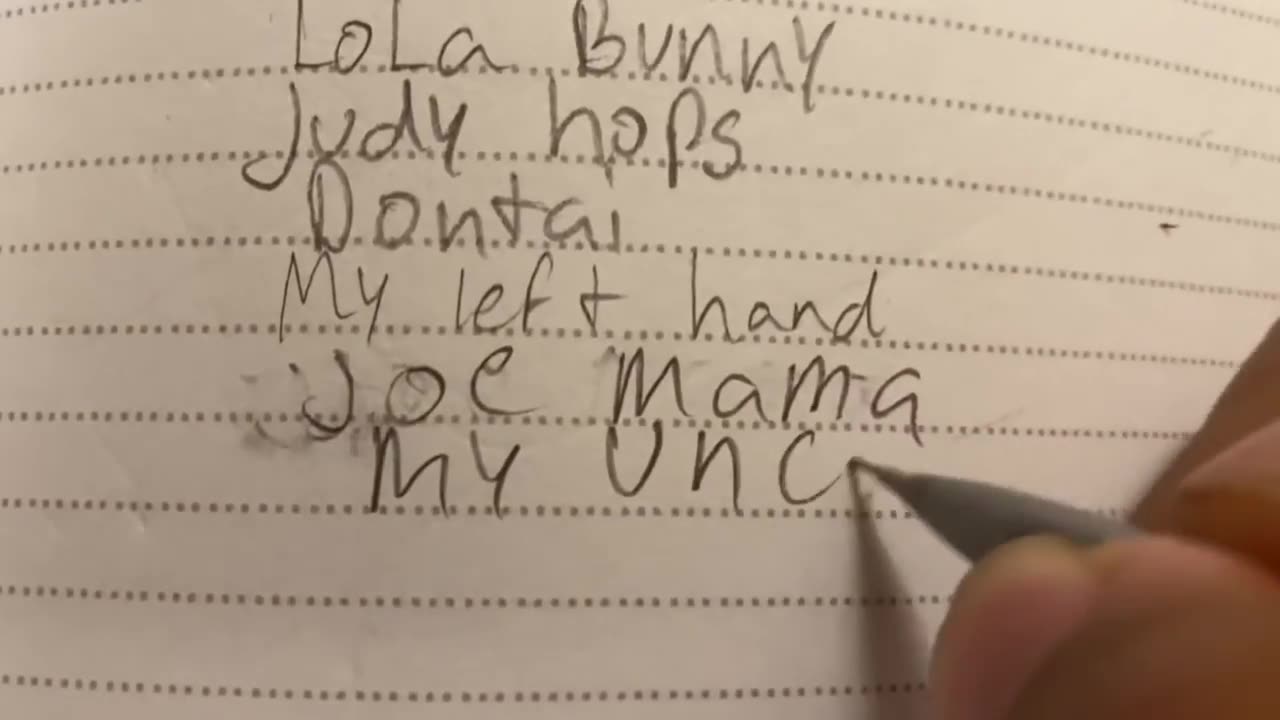 LoLa Bunny
Judy hops
Dontai
My left hand
Joe Mama
My Unc